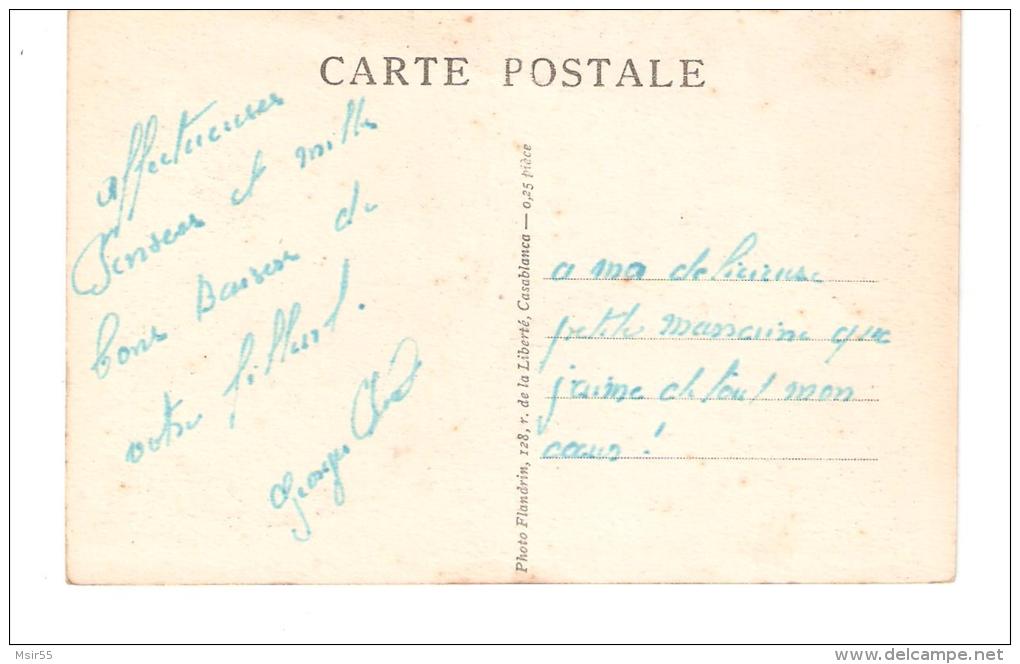 CARTE POSTALE
affectueuses
Pensées et mille
bons Baisers de
votre filleul.
Georges
a ma delicieuse
petite marraine que
j'aime de tout mon
cœur !
Photo Flandrin, 128, r. de la Liberté, Casablanca — 0,25 pièce
Msir55
www.delcampe.net